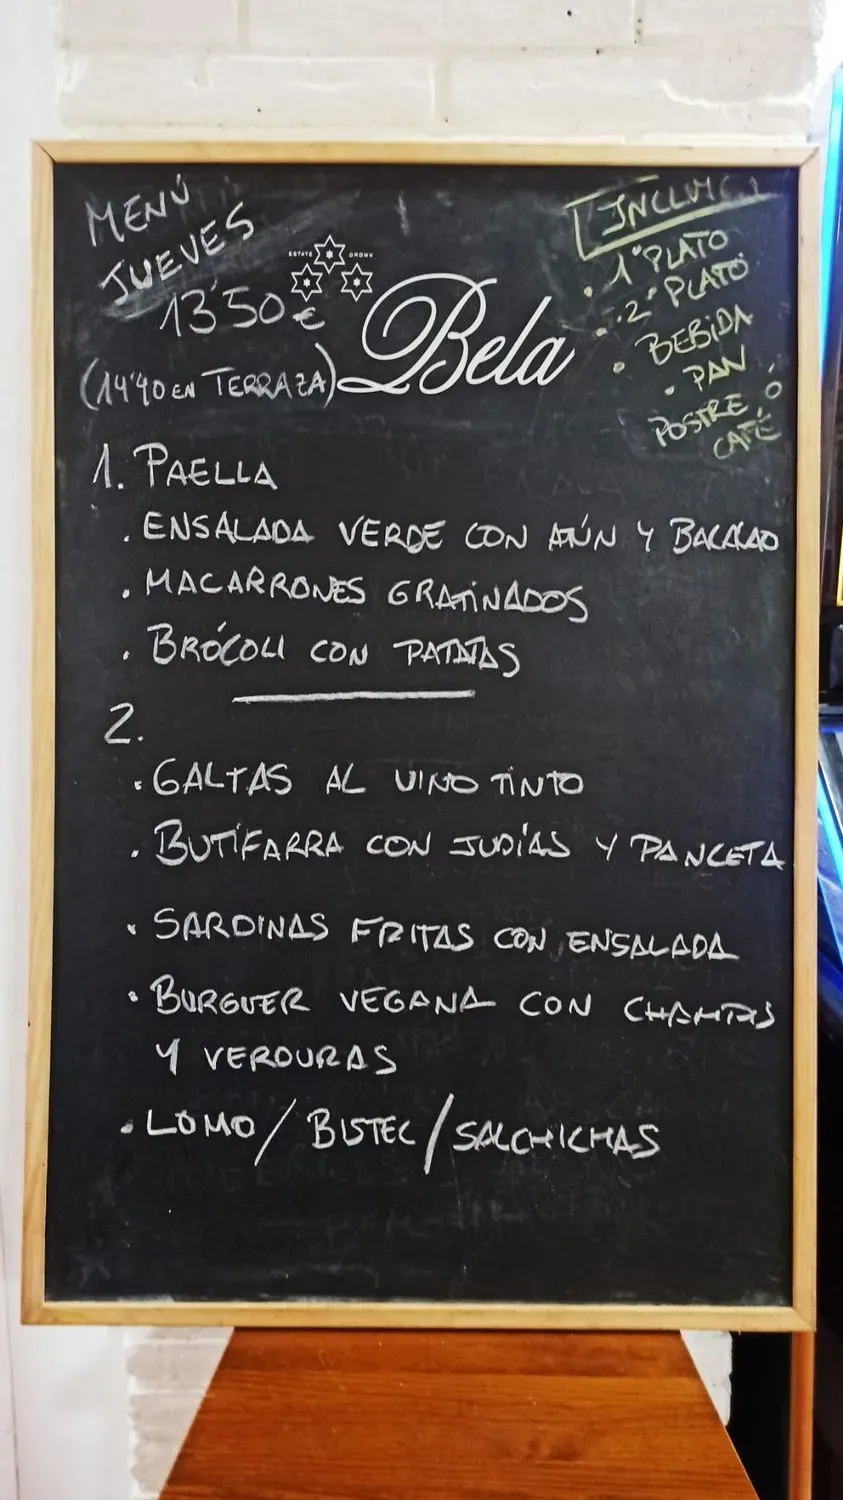 MENÚ
JUEVES
13'50€
(14'40 EN TERRAZA)
ESTATE GROWN
Bela
• 1º PLATO
• 2º PLATO
• BEBIDA
• PAN
POSTRE Ó
CAFÉ
1. PAELLA
. ENSALADA VERDE CON ATÚN Y BACALAO
. MACARRONES GRATINADOS
. BRÓCOLI CON PATATAS
2.
. GALTAS AL VINO TINTO
. BUTIFARRA CON JUDÍAS Y PANCETA
. SARDINAS FRITAS CON ENSALADA
. BURGUER VEGANA CON CHAMPIS
Y VERDURAS
. LOMO / BISTEC / SALCHICHAS